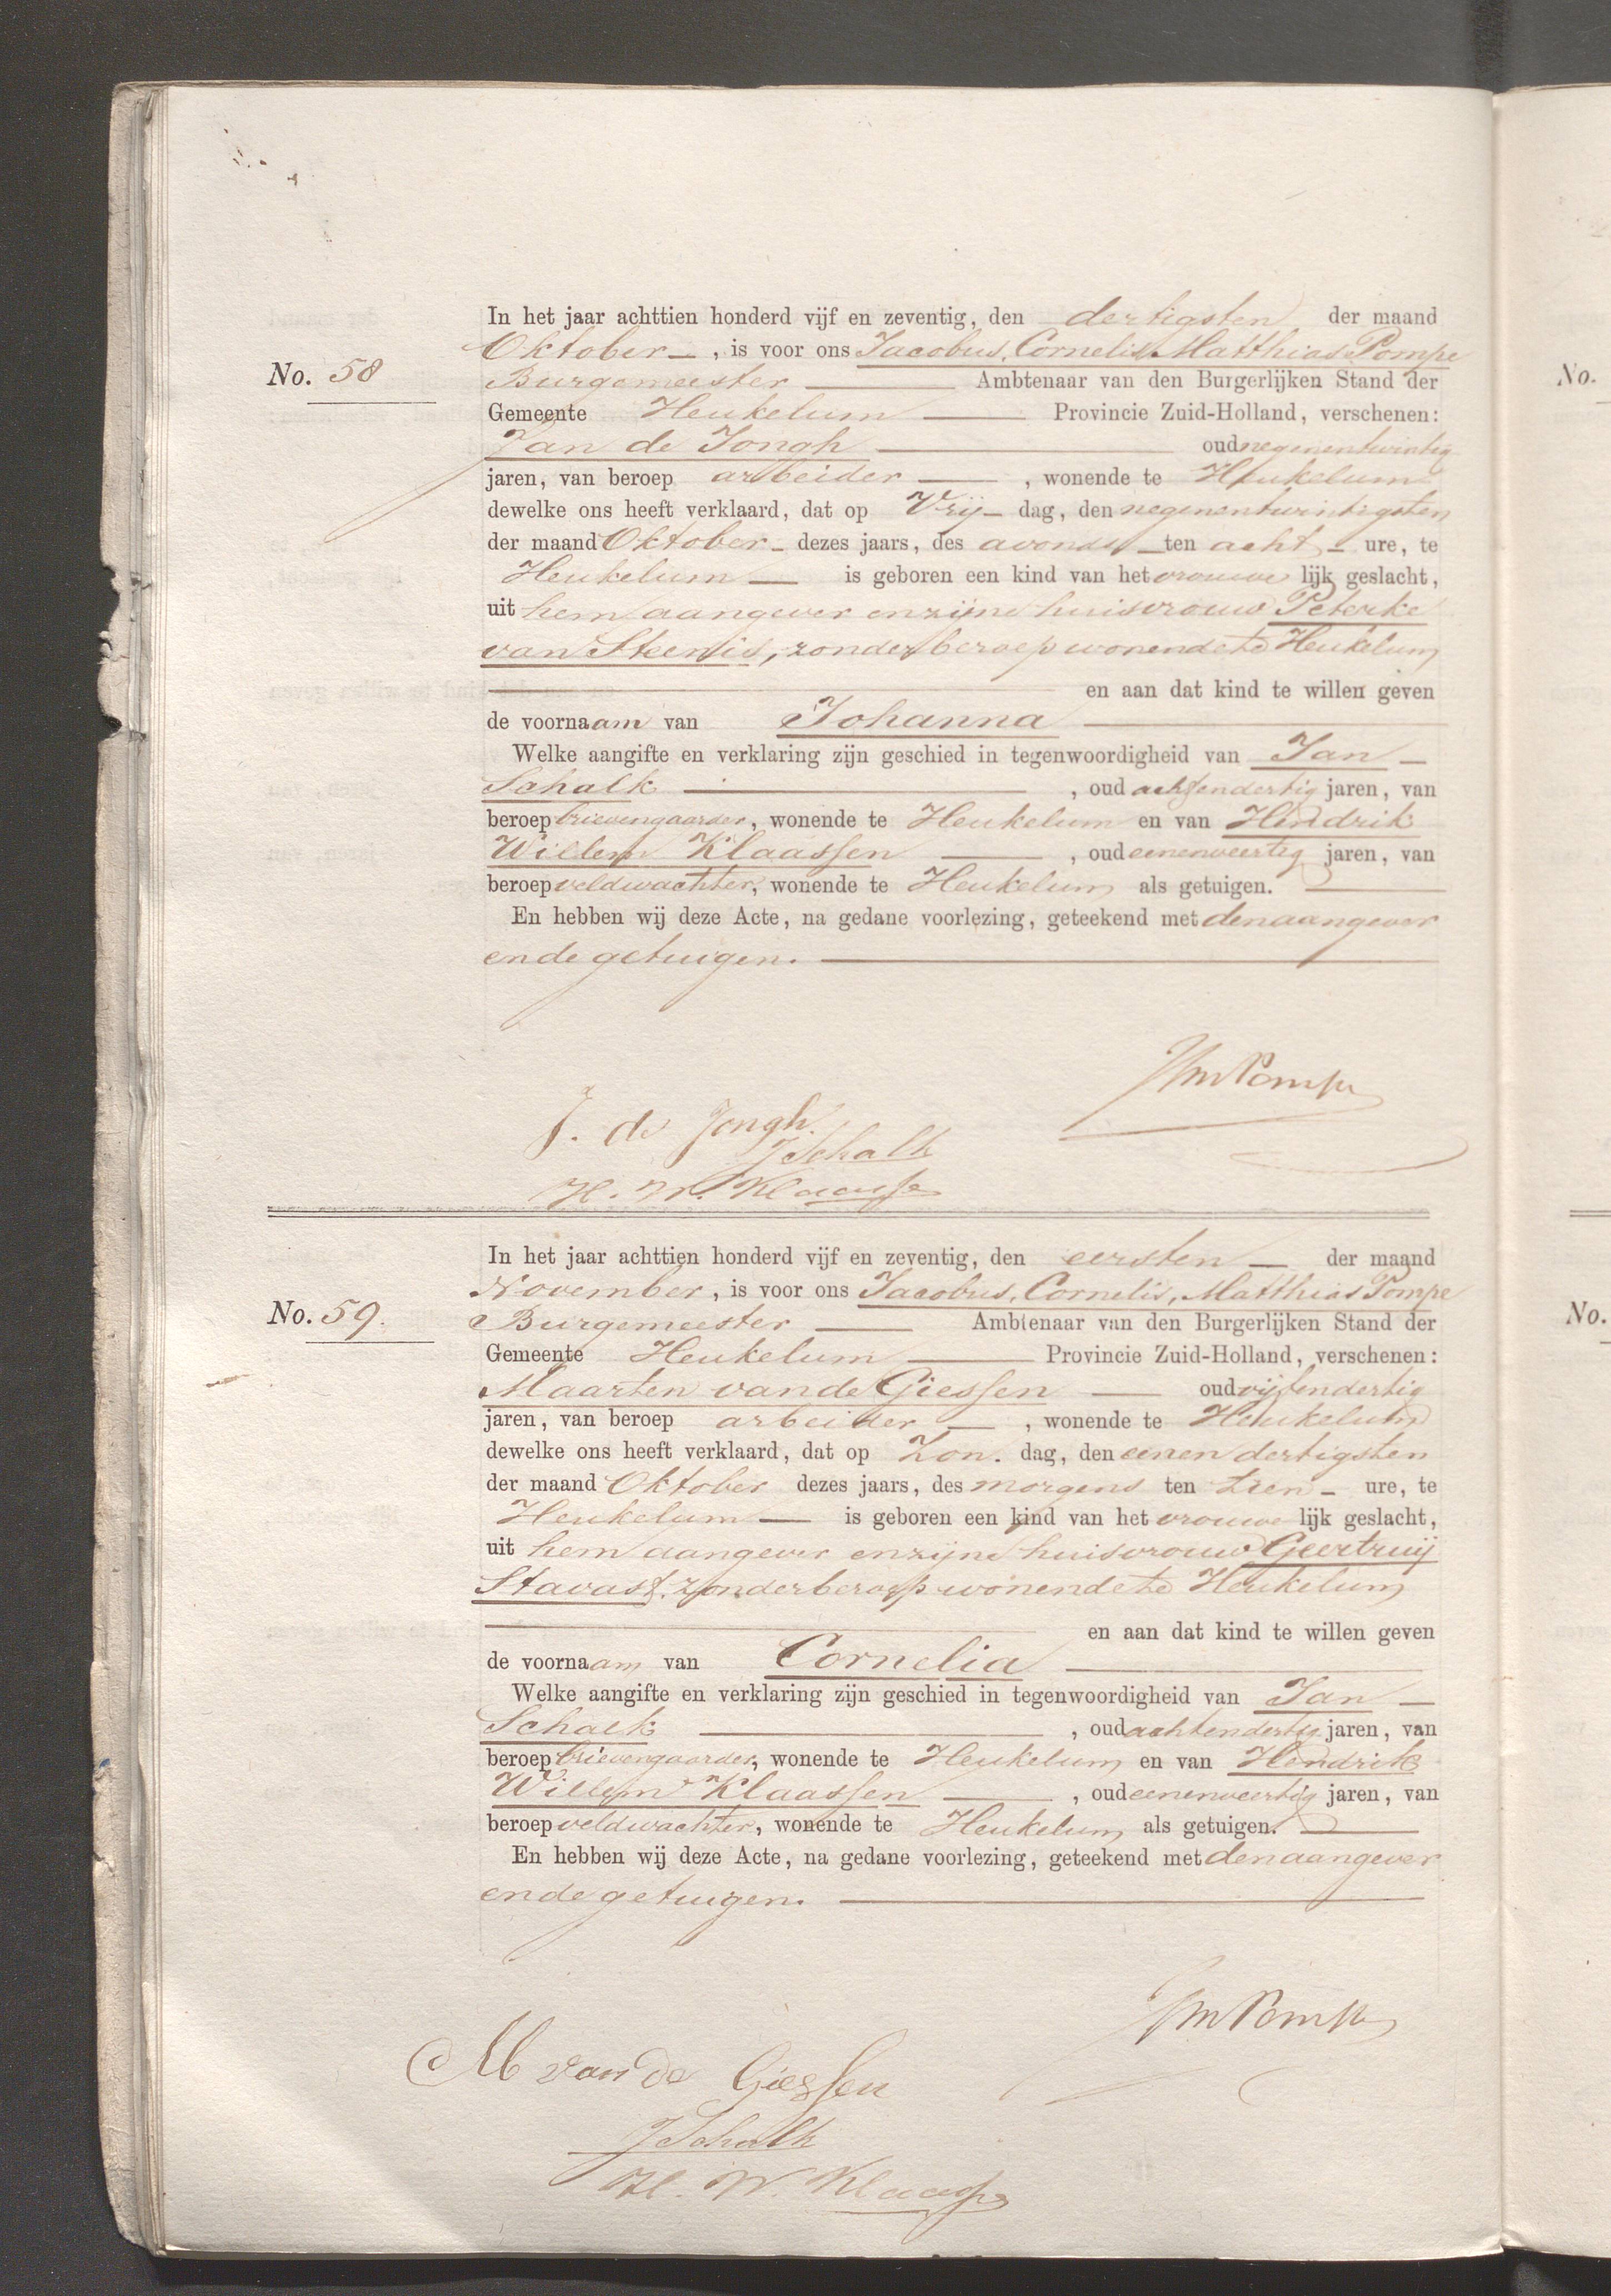 In het jaar achttien honderd vijf en zeventig, den dertigsten der maand
Oktober , is voor ons Jacobus, Cornelis, Matthias Pompe
No. 58
Burgemeester Ambtenaar van den Burgerlijken Stand der
Gemeente Heukelum Provincie Zuid-Holland, verschenen:
Jan de Jongh oud negenentwintig
jaren, van beroep arbeider , wonende te Heukelum
dewelke ons heeft verklaard, dat op Vrij dag, den negenentwintigsten
der maand Oktober dezes jaars, des avonds ten acht ure, te
Heukelum is geboren een kind van het vrouwe lijk geslacht,
uit hem aangever en zijne huisvrouw Peterke
van Steenis, zonder beroep wonende te Heukelum
en aan dat kind te willen geven
de voornaam van Johanna
Welke aangifte en verklaring zijn geschied in tegenwoordigheid van Jan
Schalk , oud achtendertig jaren, van
beroep brievengaarder, wonende te Heukelum en van Hendrik
Willem Klaassen , oud eenenveertig jaren, van
beroep veldwachter, wonende te Heukelum als getuigen.
En hebben wij deze Acte, na gedane voorlezing, geteekend met den aangever
en de getuigen.
JCMPompe
J. de Jongh.
J Schalk
H. W. Klaassen
In het jaar achttien honderd vijf en zeventig, den eersten der maand
November, is voor ons Jacobus, Cornelis, Matthias Pompe
No. 59.
Burgemeester Ambtenaar van den Burgerlijken Stand der
Gemeente Heukelum Provincie Zuid-Holland, verschenen:
Maarten van de Giessen oud vijfendertig
jaren, van beroep arbeider , wonende te Heukelum
dewelke ons heeft verklaard, dat op Zon. dag, den eenendertigsten
der maand Oktober dezes jaars, des morgens ten tien ure, te
Heukelum is geboren een kind van het vrouwe lijk geslacht,
uit hem aangever en zijne huisvrouw Geertruij
Stavast, zonder beroep wonende te Heukelum
en aan dat kind te willen geven
de voornaam van Cornelia
Welke aangifte en verklaring zijn geschied in tegenwoordigheid van Jan
Schalk , oud achtendertig jaren, van
beroep brievengaarder, wonende te Heukelum en van Hendrik
Willem Klaassen , oud eenenveertig jaren, van
beroep veldwachter, wonende te Heukelum als getuigen.
En hebben wij deze Acte, na gedane voorlezing, geteekend met den aangever
en de getuigen.
JCMPompe
M van de Giessen
J Schalk
H. W. Klaassen
No.
No.